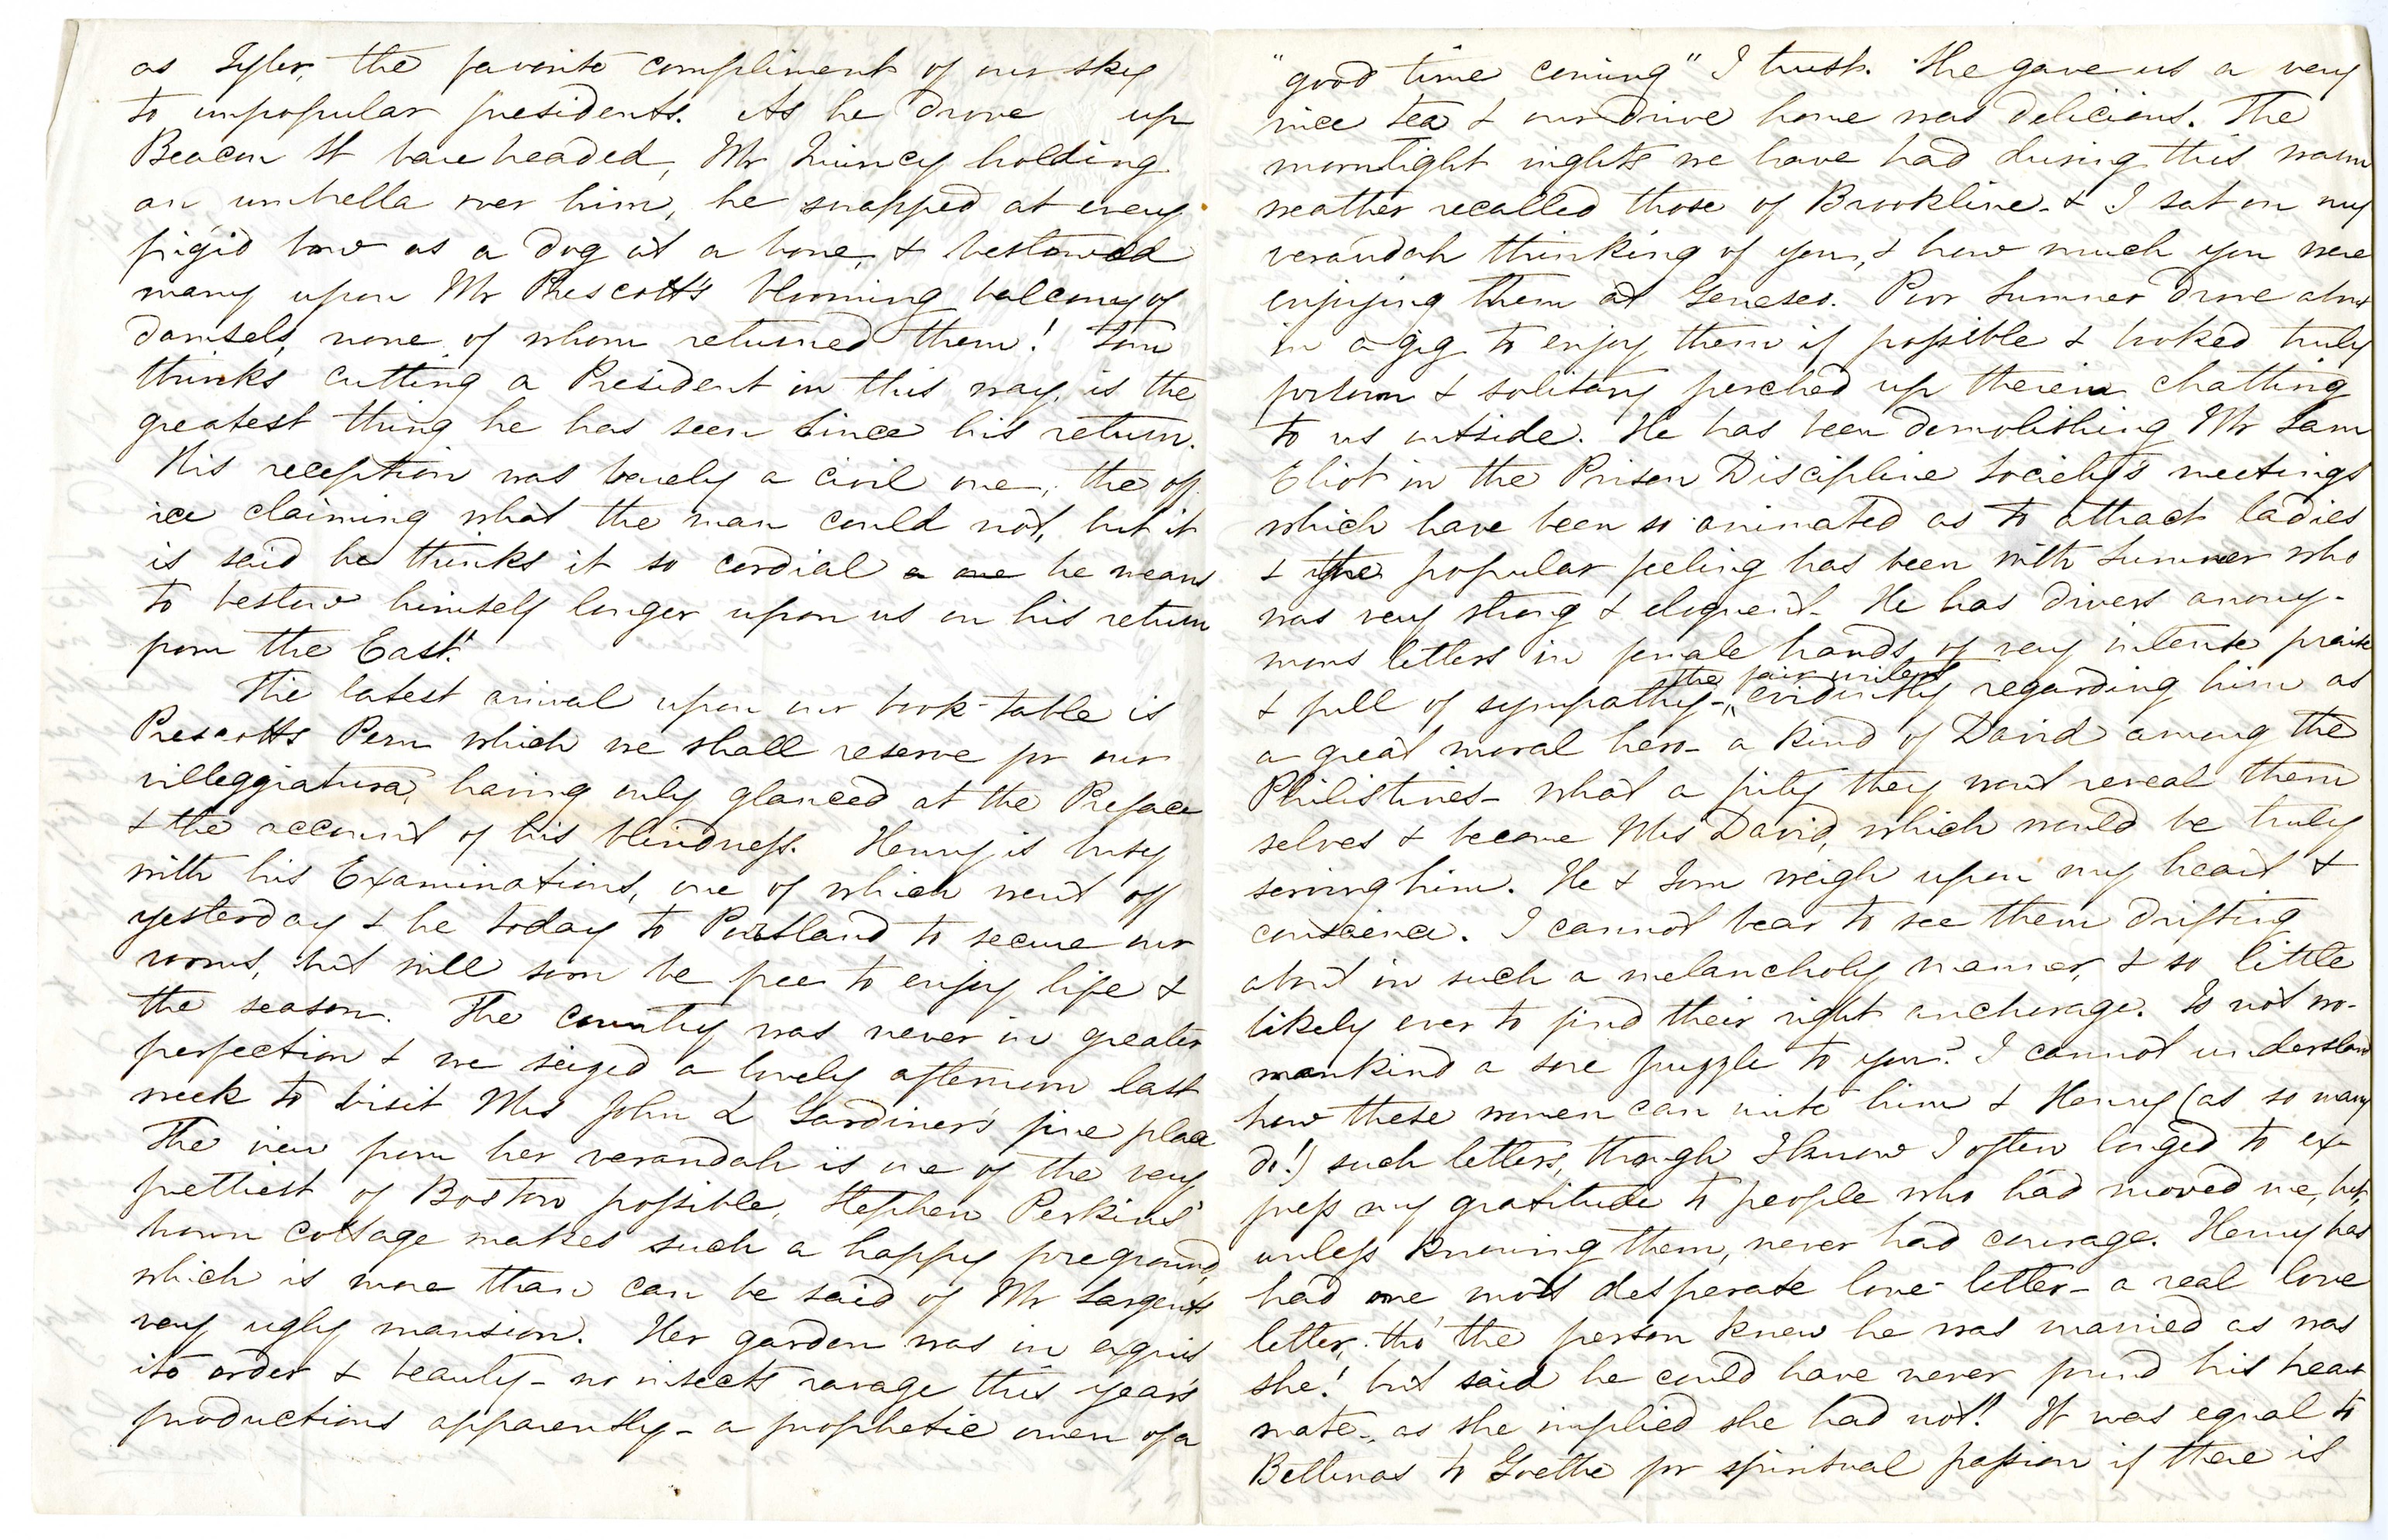 as Tyler, the favorite compliment of our sky
to unpopular presidents. As he drove up
Beacon St bareheaded, Mr Quincy holding
an umbrella over him, he snapped at every
frigid bow as a dog at a bone, & bestowed
many upon Mr Prescott's blooming balcony of
damsels, none of whom returned them! Tom
thinks cutting a President in this way, is the
greatest thing he has seen since his return.
His reception was barely a civil one, the off
ice claiming what the man could not, but it
is said he thinks it so cordial a one he means
to bestow himself longer upon us on his return
from the East."
The latest arrival upon our book-table is
Prescotts Peru which we shall reserve for our
villeggiatura, having only glanced at the Preface
& the account of his blindness. Henry is busy
with his Examinations, one of which went off
yesterday & he today to Portland to secure our
rooms, but will soon be free to enjoy life &
the season. The country was never in greater
perfection & we seized a lovely afternoon last
week to visit Mrs John L Gardiner's fine place
The view from her verandah is one of the very
prettiest of Boston possible, Stephen Perkins'
brown cottage makes such a happy foreground,
which is more than can be said of Mr Sargents
very ugly mansion. Her garden was in exquis
ite order & beauty - no insects ravage this years
productions apparently - a prophetic omen of a
"good time coming" I trust. She gave us a very
nice tea & our drive home was delicious. The
moonlight nights we have had during this warm
weather recalled those of Brookline - & I sat on my
verandah thinking of you, & how much you were
enjoying them at Geneseo. Poor Sumner drove about
in a gig to enjoy them if possible & looked truly
forlorn & solitary perched up therein chatting
to us outside. He has been demolishing Mr Sam
Eliot in the Prison Discipline Society's meetings
which have been so animated as to attract ladies
& the popular feeling has been with Sumner who
was very strong & eloquent. He has divers anony-
mous letters in female hands of very intense praise
& full of sympathy - the fair writers evidently regarding him as
a great moral hero - a kind of David among the
Philistines - what a pity they wont reveal them
selves & become Mrs David, which would be truly
serving him. He & Tom weigh upon my heart &
conscience. I cannot bear to see them drifting
about in such a melancholy manner, & so little
likely ever to find their right anchorage. Is not wo-
mankind a sore puzzle to you? I cannot understand
how these women can write him & Henry (as so many
do!) such letters, though I know I often longed to ex
press my gratitude to people who had moved me, but,
unless knowing them, never had courage. Henry has
had one most desperate love-letter - a real love
letter, tho' the person knew he was married as was
she! but said he could have never found his heart
mate -, as she implied she had not! It was equal to
Bettinas to Goethe for spiritual passion if there is